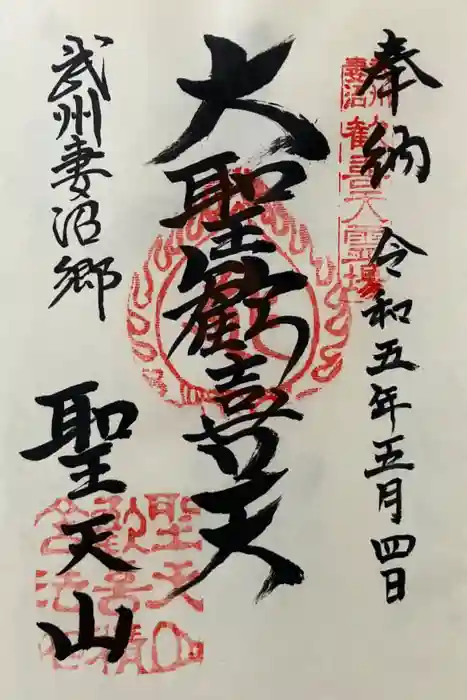 奉納 令和五年五月四日
大聖歓喜天
武州妻沼郷
聖天山
武州妻沼
歓喜天霊場